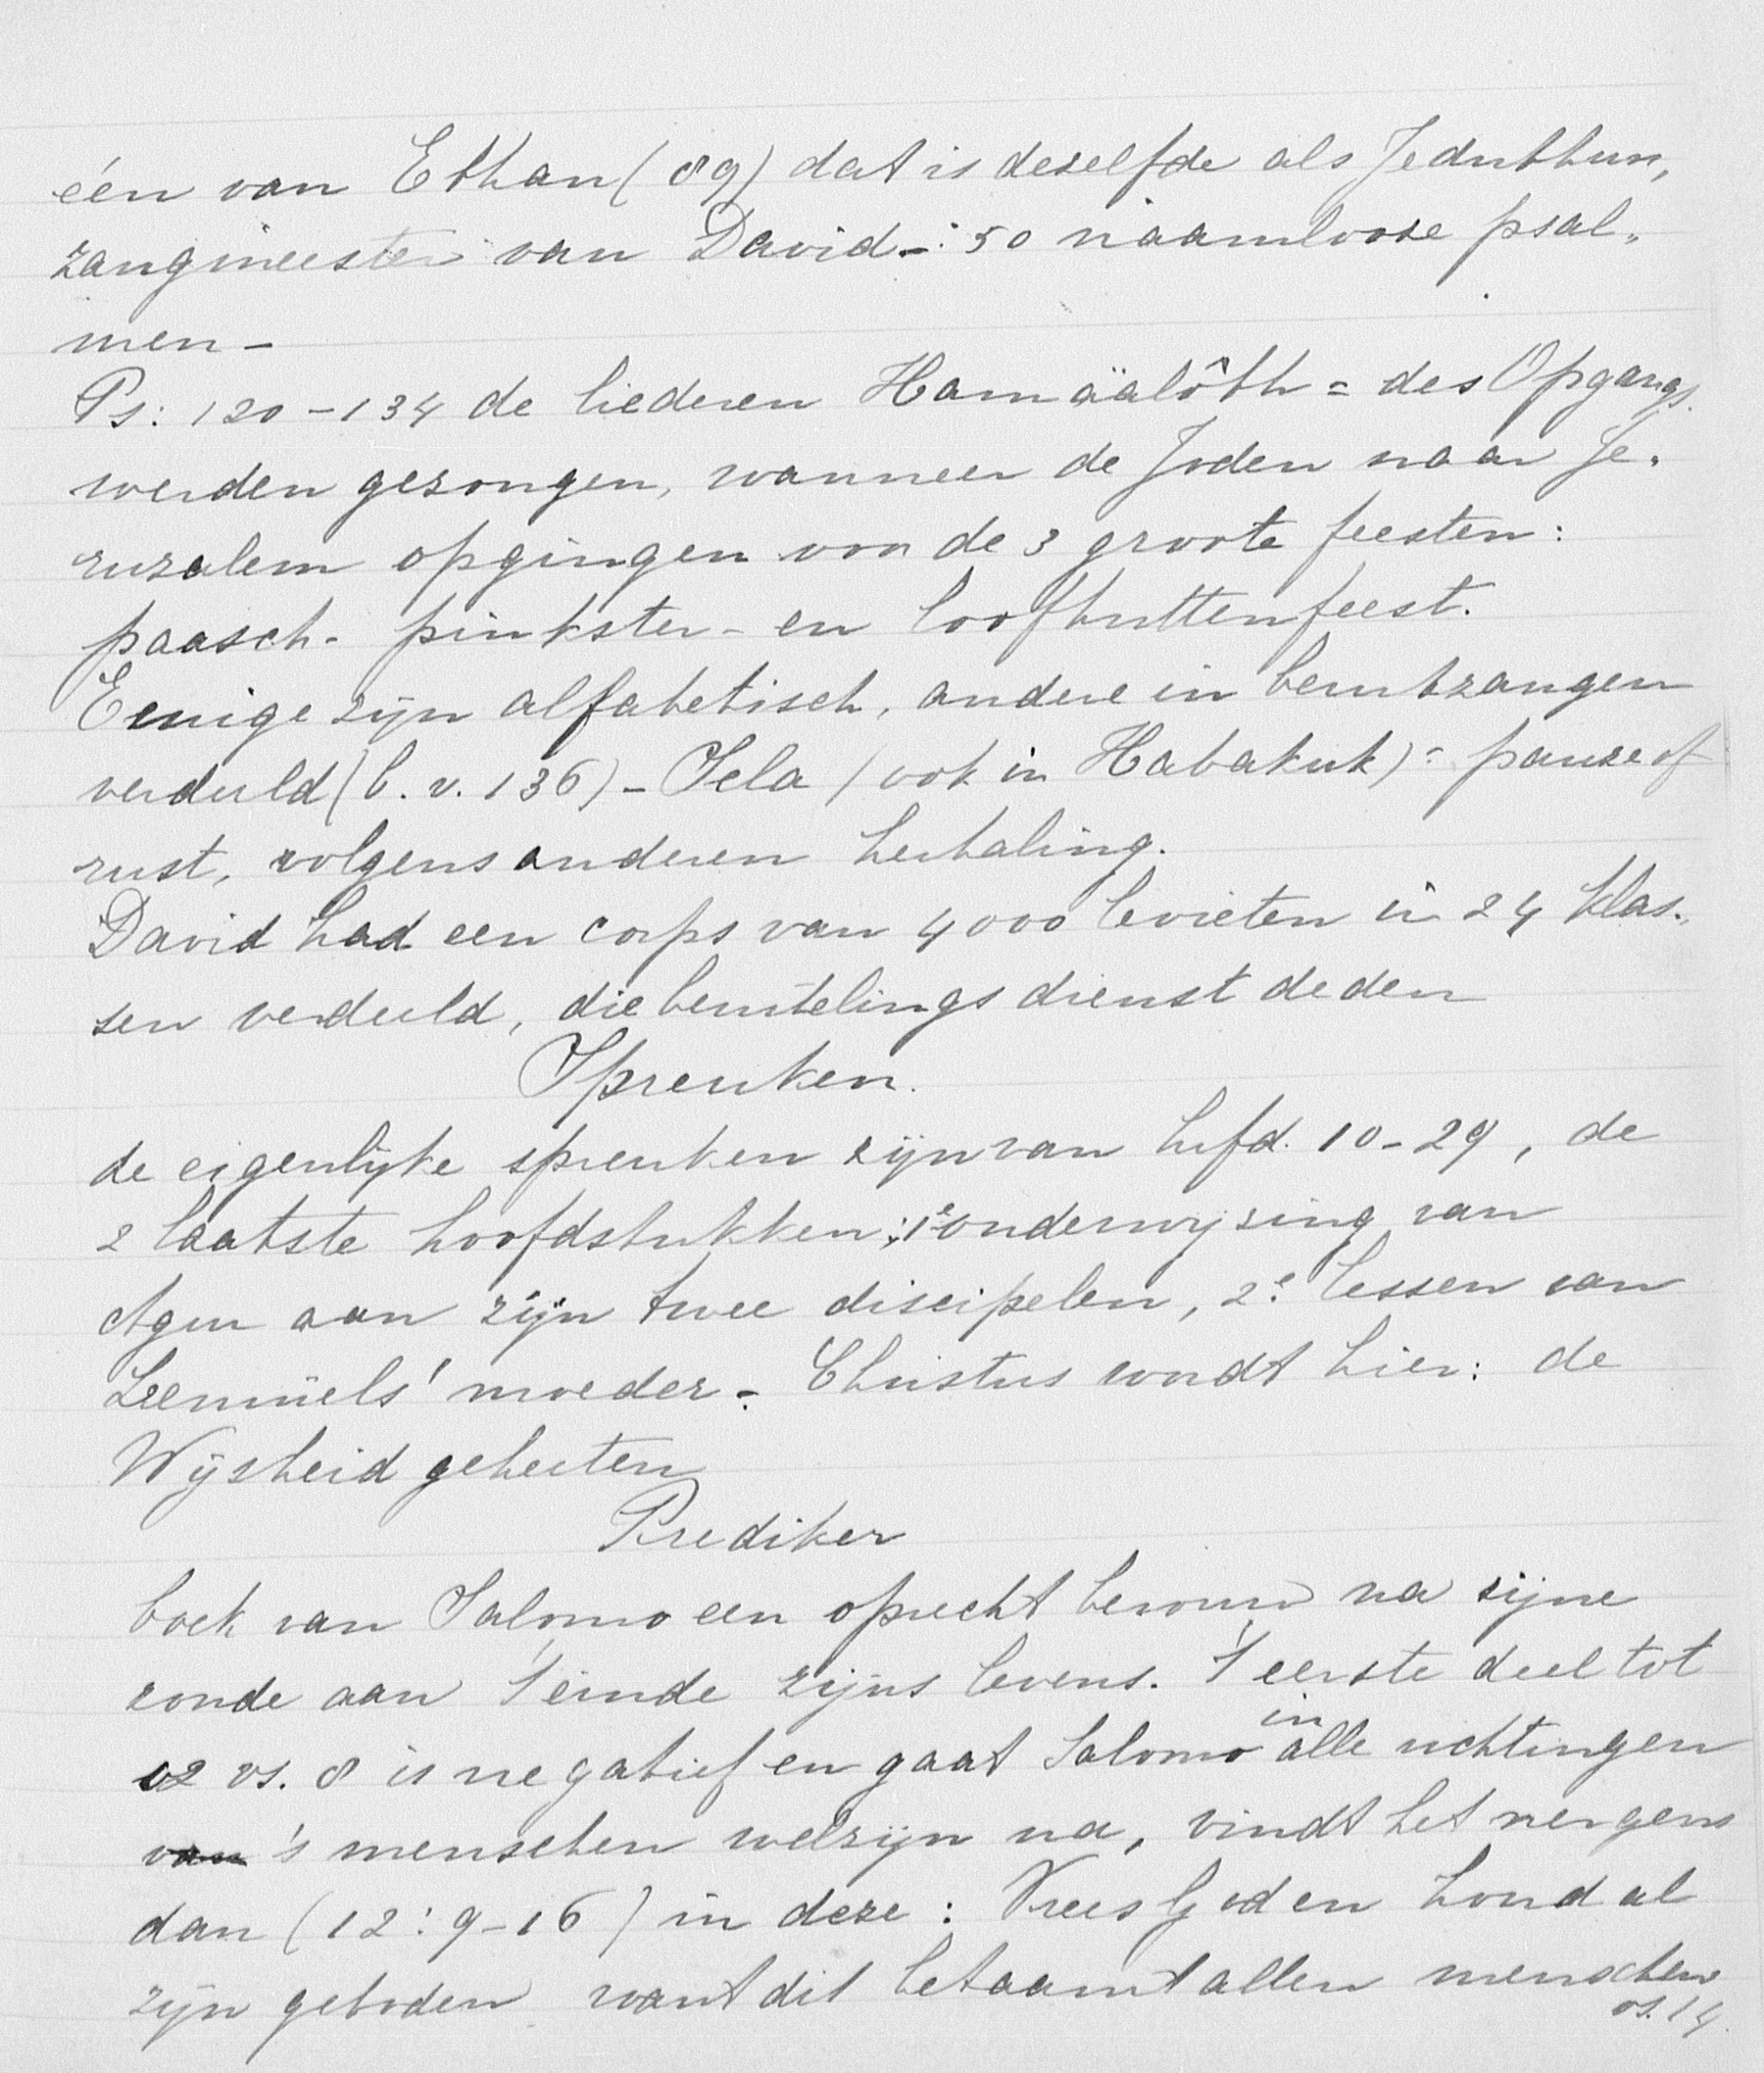 één van Ethan (89) dat is deselfde als Jeduthun,
zangmeester van David -: 50 naamlooze psal-
men -
Ps: 120-134 de liederen Hamäalôth = des Opgangs.
werden gezongen, wanneer de Joden naar Je-
ruzalem opgingen voor de 3 groote feesten:
paasch- pinkster- en loofhuttenfeest.
Eenige zijn alfabetisch, andere in beurtzangen
verdeeld (b.v. 136) - Sela (ook in Habakuk) = pauze of
rust, volgens anderen herhaling.
David had een corps van 4000 levieten in 24 klas-
sen verdeeld, die beurtelings dienst deden
Spreuken.
de eigenlijke spreuken zijn van hfd. 10-29, de
2 laatste hoofdstukken: 1e onderwijzing van
Agur aan zijn twee discipelen, 2e lessen van
Lemuëls' moeder - Christus wordt hier: de
Wijsheid geheeten
Prediker
boek van Salomo een oprecht berouw na zijne
zonde aan 't einde zijns levens. 't eerste deel tot
12 vs. 8 is negatief en gaat Salomo in alle richtingen
van 's menschen welzijn na, vindt het nergens
dan (12:9-16) in deze: Vrees God en houd al
zijn geboden want dit betaamt allen menschen
vs. 14.